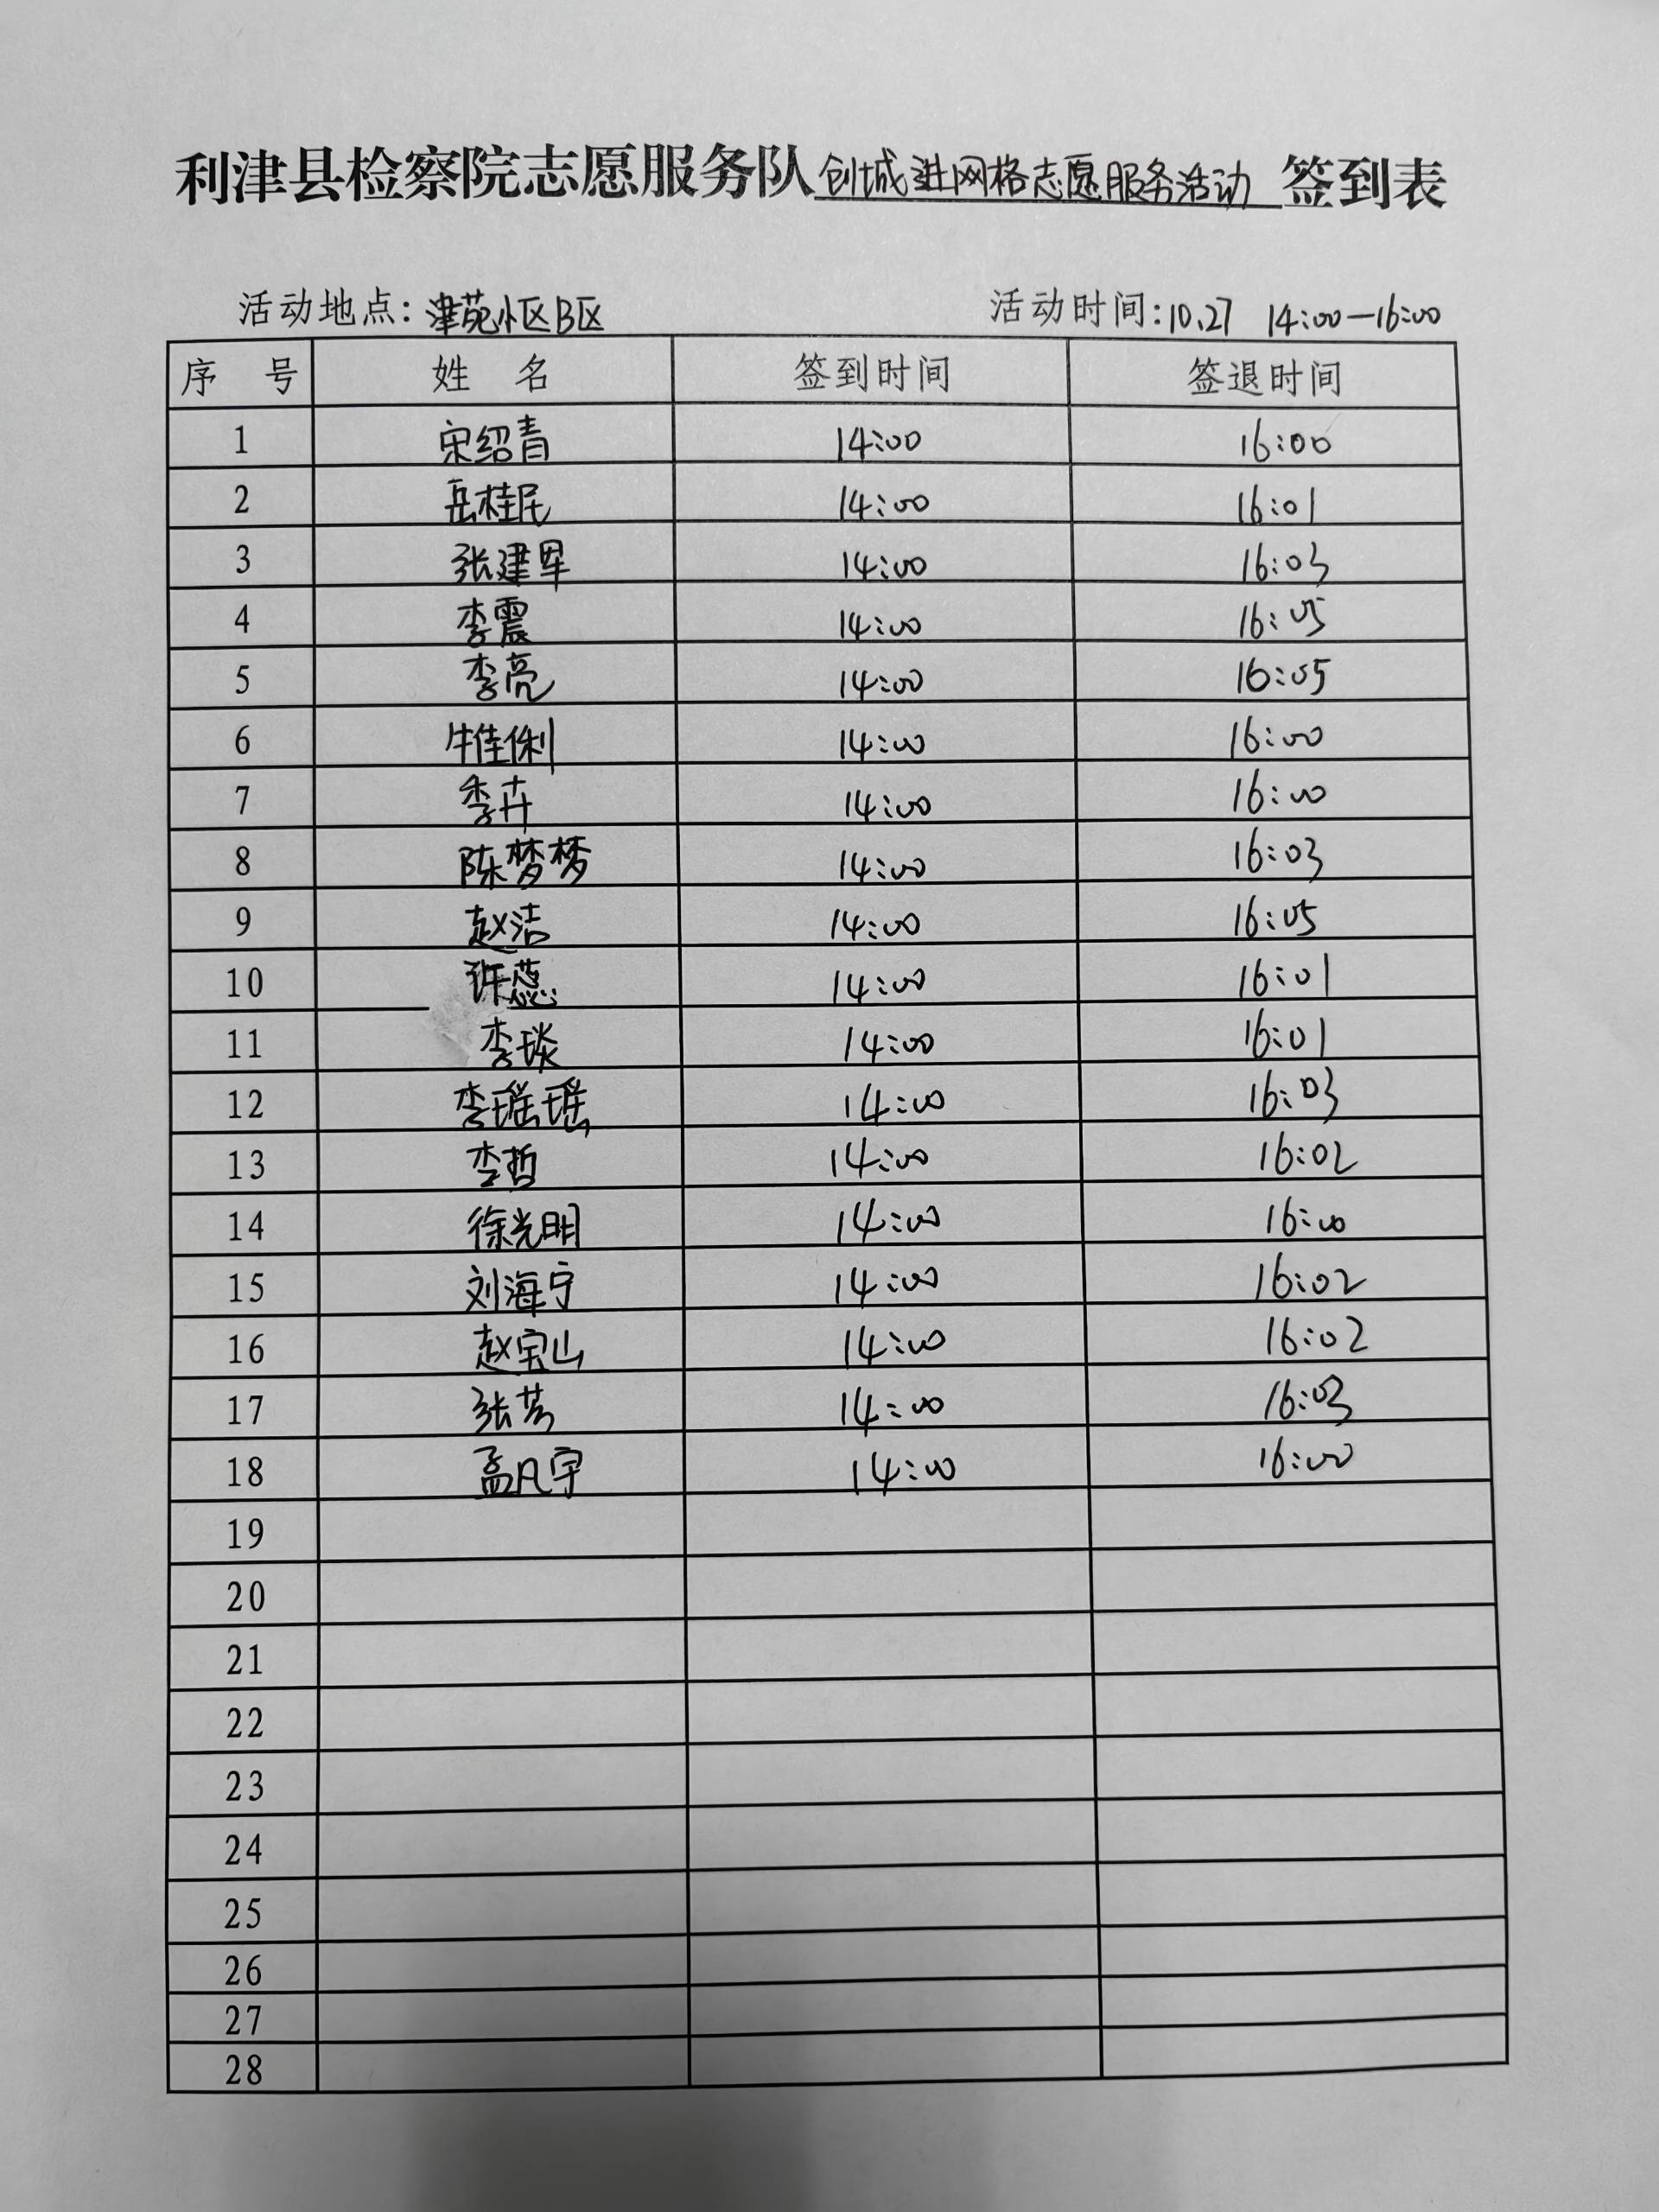 利津县检察院志愿服务队创城进网格志愿服务活动 签到表
活动地点：津苑小区B区 活动时间：10.27 14:00—16:00
序 号 姓 名 签到时间 签退时间
1 宋绍青 14:00 16:00
2 岳桂民 14:00 16:01
3 张建军 14:00 16:03
4 李震 14:00 16:05
5 李亮 14:00 16:05
6 牛佳俐 14:00 16:00
7 李卉 14:00 16:00
8 陈梦梦 14:00 16:03
9 赵洁 14:00 16:05
10 许蕊 14:00 16:01
11 李琰 14:00 16:01
12 李瑶瑶 14:00 16:03
13 李哲 14:00 16:02
14 徐光明 14:00 16:00
15 刘海宁 14:00 16:02
16 赵宝山 14:00 16:02
17 张芳 14:00 16:03
18 孟凡宇 14:00 16:00
19
20
21
22
23
24
25
26
27
28